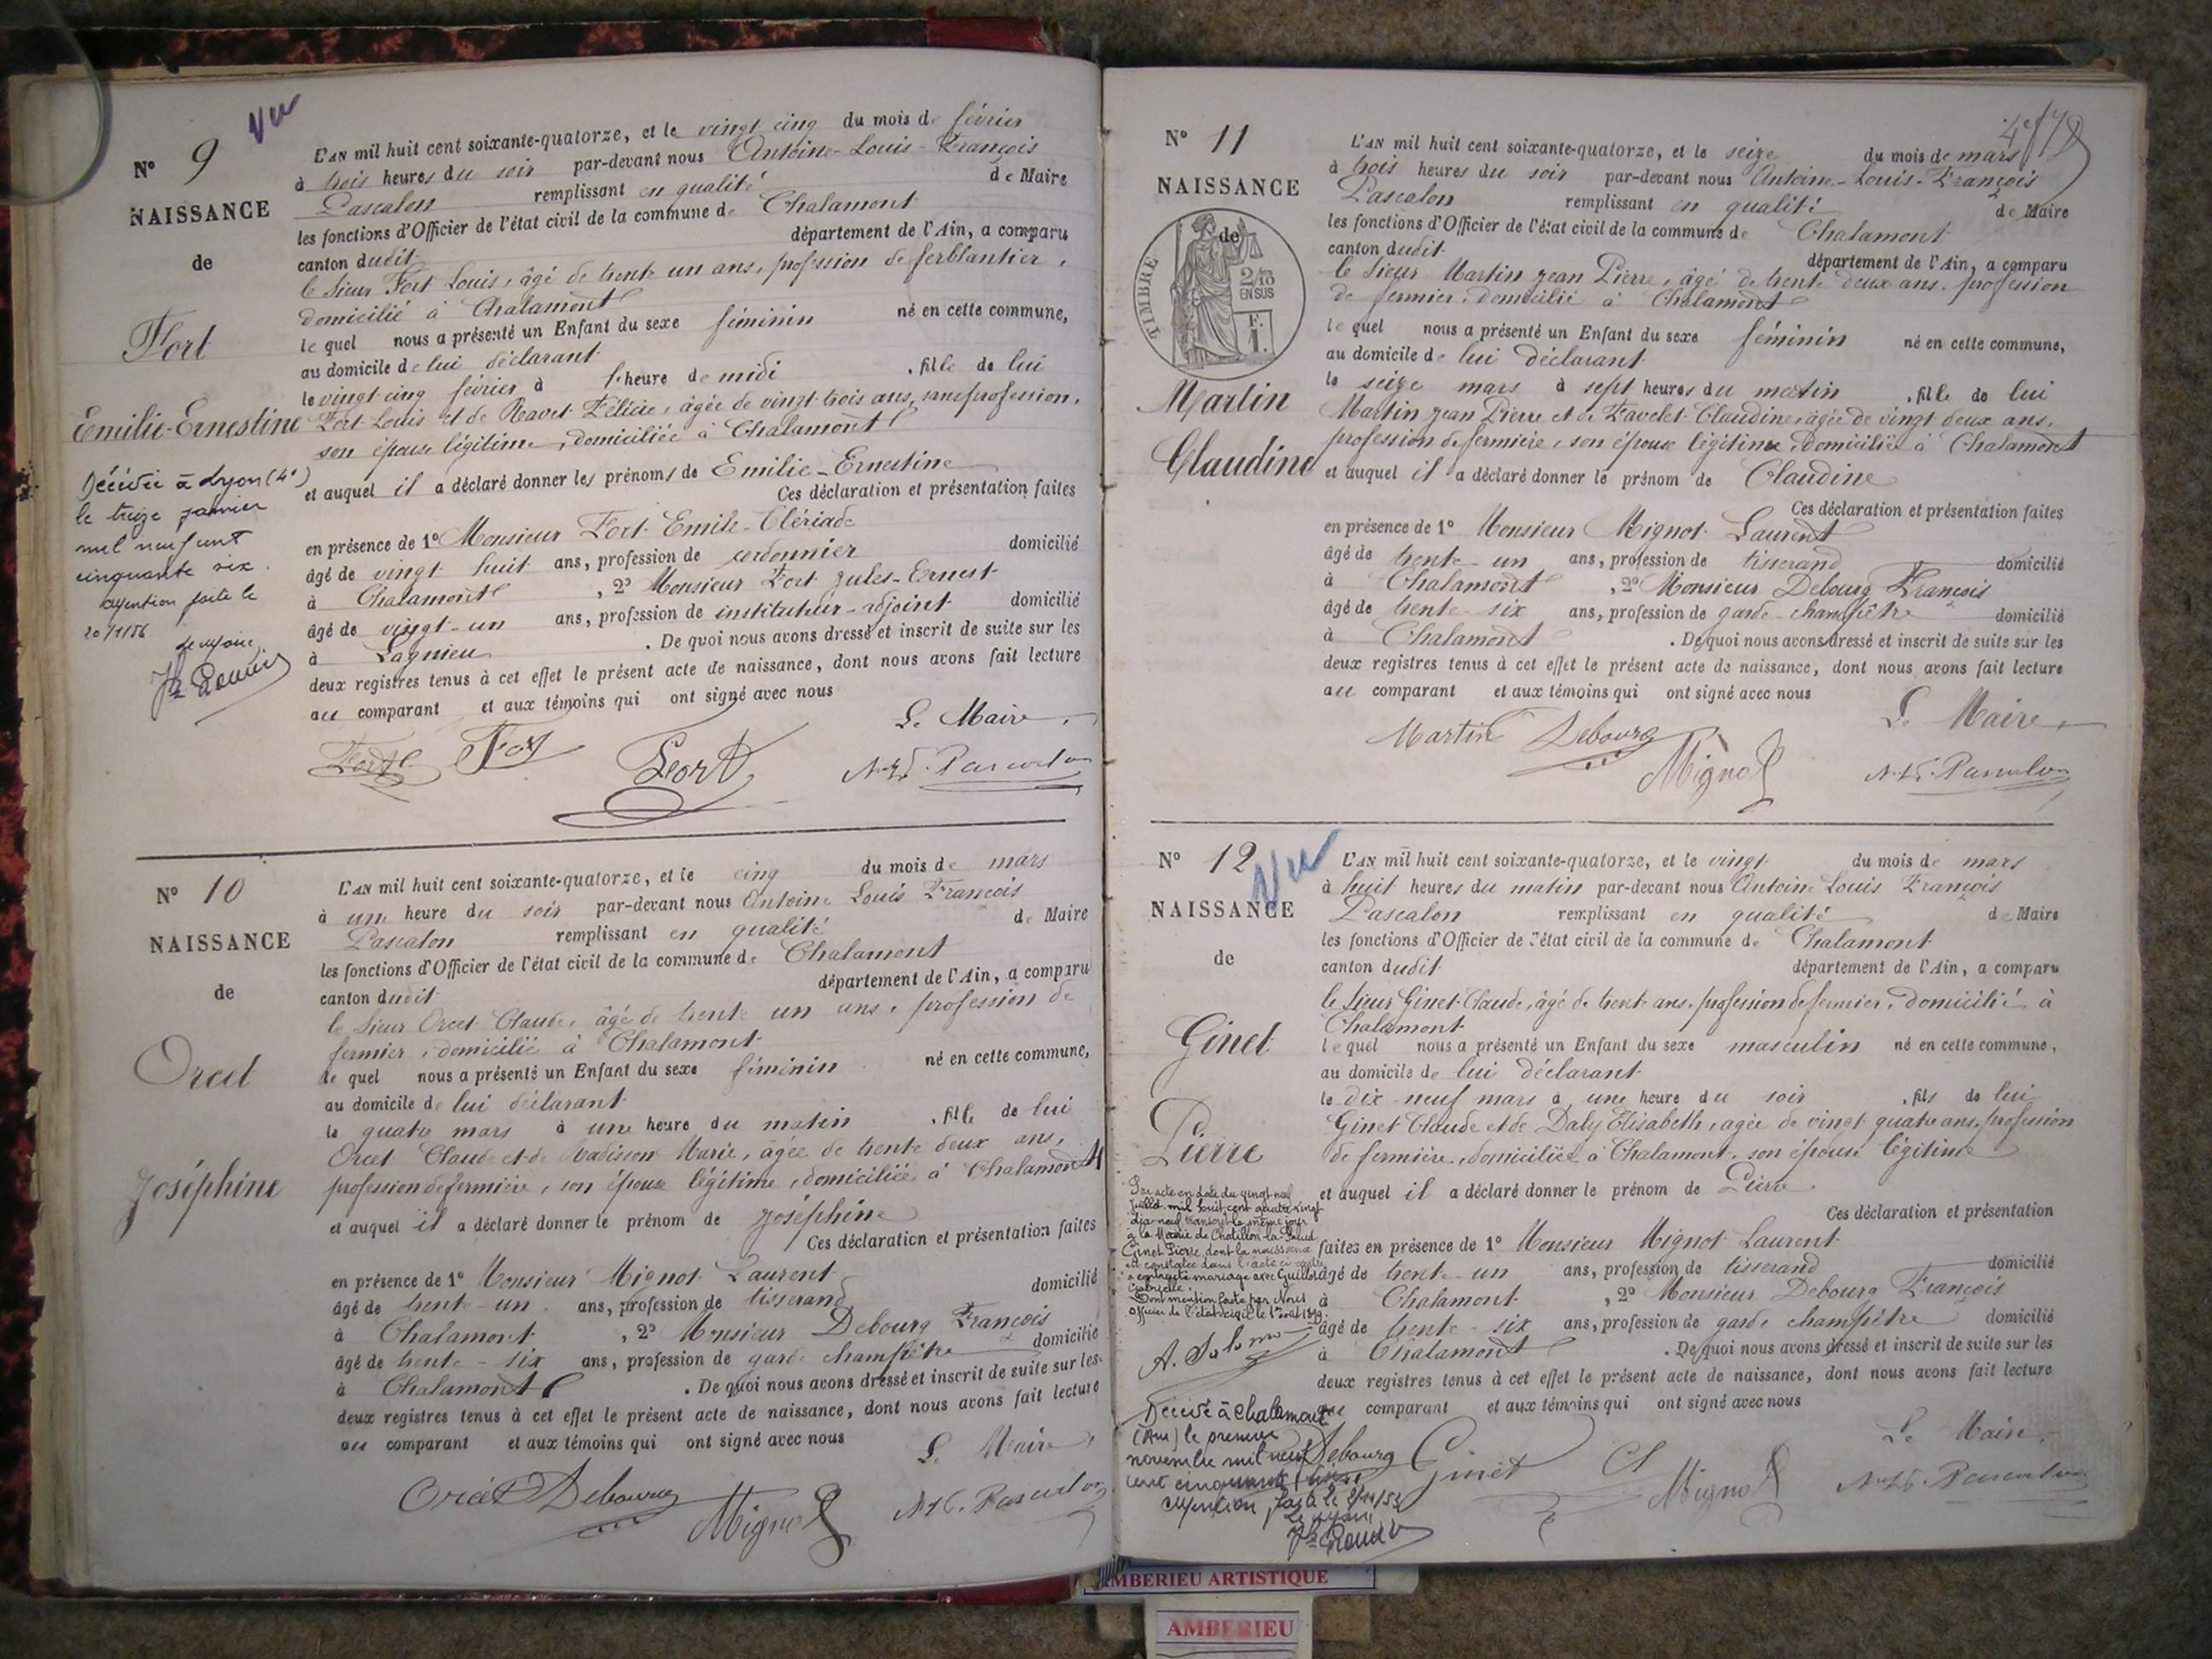 Vu
N° 9
NAISSANCE
de
Fort
Emilie-Ernestine
Décédée à Lyon (4e)
le treize janvier
mil neuf cent
cinquante six.
Mention faite le
20/1/56
Le Maire
L'AN mil huit cent soixante-quatorze, et le vingt cinq du mois de février
à trois heures du soir par-devant nous Antoine-Louis-François
Pascalon remplissant en qualité de Maire
les fonctions d'Officier de l'état civil de la commune de Chalamont
canton dudit département de l'Ain, a comparu
le Sieur Fort Louis, âgé de trente un ans, profession de ferblantier,
domicilié à Chalamont
le quel nous a présenté un Enfant du sexe féminin né en cette commune,
au domicile de lui déclarant
le vingt-cinq février à heure de midi , fille de lui
Fort Louis et de Ravet Félicie, âgée de vingt-trois ans, sans profession,
son épouse légitime, domiciliée à Chalamont
et auquel il a déclaré donner les prénoms de Emilie-Ernestine
Ces déclaration et présentation faites
en présence de 1° Monsieur Fort Emile-Clériade
âgé de vingt huit ans, profession de cordonnier domicilié
à Chalamont , 2° Monsieur Fort Jules-Ernest
âgé de vingt-un ans, profession de instituteur-adjoint domicilié
à Lagnieu . De quoi nous avons dressé et inscrit de suite sur les
deux registres tenus à cet effet le présent acte de naissance, dont nous avons fait lecture
au comparant et aux témoins qui ont signé avec nous
Le Maire,
Fort Fort Fort Pascalon
N° 10
NAISSANCE
de
Orcet
Joséphine
L'AN mil huit cent soixante-quatorze, et le cinq du mois de mars
à une heure du soir par-devant nous Antoine Louis François
Pascalon remplissant en qualité de Maire
les fonctions d'Officier de l'état civil de la commune de Chalamont
canton dudit département de l'Ain, a comparu
le Sieur Orcet Claude, âgé de trente un ans, profession de
fermier, domicilié à Chalamont
le quel nous a présenté un Enfant du sexe féminin né en cette commune,
au domicile de lui déclarant
le quatre mars à une heure du matin , fille de lui
Orcet Claude et de Marie, âgée de trente deux ans,
profession de fermière, son épouse légitime, domiciliée à Chalamont
et auquel il a déclaré donner le prénom de Joséphine
Ces déclaration et présentation faites
en présence de 1° Monsieur Mignot Laurent
âgé de trente-un ans, profession de tisserand domicilié
à Chalamont , 2° Monsieur Debourg François
âgé de trente-six ans, profession de garde champêtre domicilié
à Chalamont . De quoi nous avons dressé et inscrit de suite sur les
deux registres tenus à cet effet le présent acte de naissance, dont nous avons fait lecture
au comparant et aux témoins qui ont signé avec nous
Le Maire,
Orcet Debourg Mignot Pascalon
N° 11
NAISSANCE
de
TIMBRE
2/10
EN SUS
F.
1.
Martin
Claudine
L'AN mil huit cent soixante-quatorze, et le seize du mois de mars
à trois heures du soir par-devant nous Antoine-Louis-François
Pascalon remplissant en qualité de Maire
les fonctions d'Officier de l'état civil de la commune de Chalamont
canton dudit département de l'Ain, a comparu
le Sieur Martin Jean Pierre, âgé de trente deux ans, profession
de fermier, domicilié à Chalamont
le quel nous a présenté un Enfant du sexe féminin né en cette commune,
au domicile de lui déclarant
le seize mars à sept heures du matin , fille de lui
Martin Jean Pierre et de Favelet Claudine, âgée de vingt deux ans,
profession de fermière, son épouse légitime, domiciliée à Chalamont
et auquel il a déclaré donner le prénom de Claudine
Ces déclaration et présentation faites
en présence de 1° Monsieur Mignot Laurent
âgé de trente-un ans, profession de tisserand domicilié
à Chalamont , 2° Monsieur Debourg François
âgé de trente-six ans, profession de garde-champêtre domicilié
à Chalamont . De quoi nous avons dressé et inscrit de suite sur les
deux registres tenus à cet effet le présent acte de naissance, dont nous avons fait lecture
au comparant et aux témoins qui ont signé avec nous
Le Maire,
Martin Debourg Mignot Pascalon
N° 12
Vu
NAISSANCE
de
Ginet
Pierre
Par acte en date du vingt neuf
juillet mil huit cent quatre vingt
dix neuf transcrit le même jour
à la Mairie de Chatillon-la-Palud
Ginet Pierre dont la naissance
est constatée dans l'acte ci-contre
a contracté mariage avec Guillot
Gabrielle.
Dont mention faite par Nous
Officier de l'état civil le 1er août 1899.
Décédé à Chalamont
(Ain) le premier
novembre mil neuf
cent cinquante
Mention faite le
Le Maire
L'AN mil huit cent soixante-quatorze, et le vingt du mois de mars
à huit heures du matin par-devant nous Antoine Louis François
Pascalon remplissant en qualité de Maire
les fonctions d'Officier de l'état civil de la commune de Chalamont
canton dudit département de l'Ain, a comparu
le Sieur Ginet Claude, âgé de trente ans, profession de fermier, domicilié à
Chalamont
le quel nous a présenté un Enfant du sexe masculin né en cette commune,
au domicile de lui déclarant
le dix-neuf mars à une heure du soir , fils de lui
Ginet Claude et de Daly Elisabeth, agée de vingt quatre ans, profession
de fermière, domiciliée à Chalamont, son épouse légitime
et auquel il a déclaré donner le prénom de Pierre
Ces déclaration et présentation
faites en présence de 1° Monsieur Mignot Laurent
âgé de trente-un ans, profession de tisserand domicilié
à Chalamont , 2° Monsieur Debourg François
âgé de trente-six ans, profession de garde champêtre domicilié
à Chalamont . De quoi nous avons dressé et inscrit de suite sur les
deux registres tenus à cet effet le présent acte de naissance, dont nous avons fait lecture
au comparant et aux témoins qui ont signé avec nous
Le Maire,
Debourg Ginet Cl Mignot Pascalon
AMBERIEU ARTISTIQUE
AMBERIEU